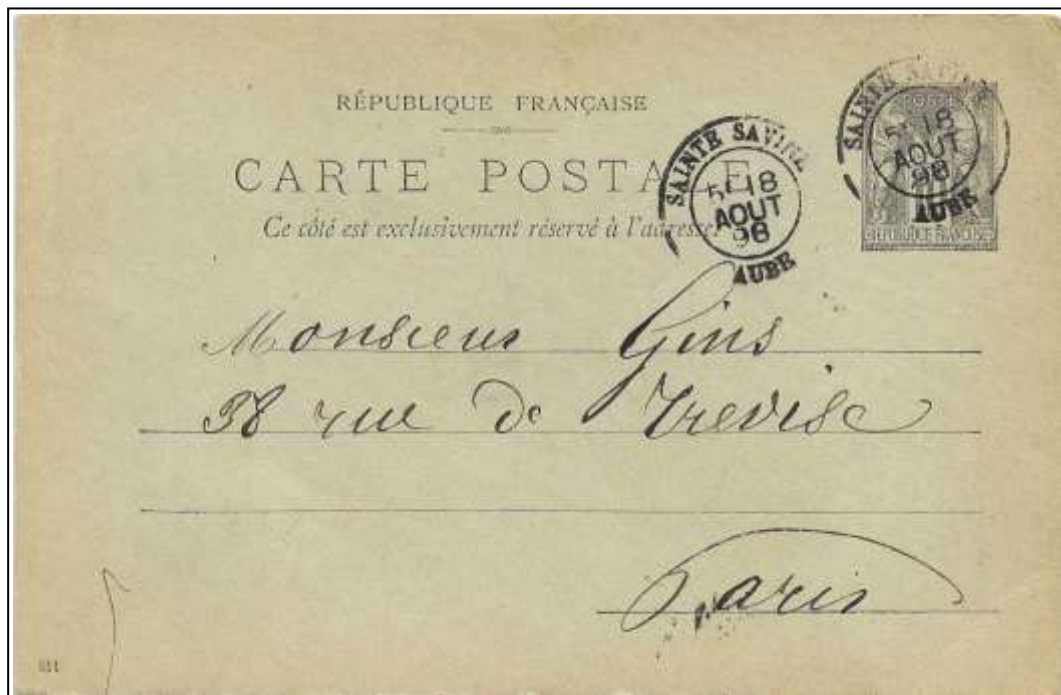 RÉPUBLIQUE FRANÇAISE
CARTE POSTALE
Ce côté est exclusivement réservé à l'adresse
SAINTE SAVINE
18
AOUT
98
AUBE
SAINTE SAVINE
18
AOUT
98
AUBE
REPUBLIQUE FRANÇAISE
Monsieur Gins
38 rue de Trevise
Paris